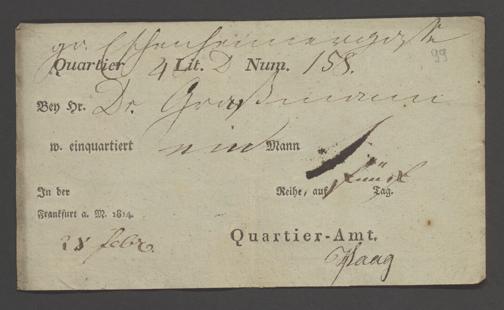 gr. Eschenheimergasse
99
Quartier 4 Lit. D Num. 158.
Bey Hr. Dr. Graßmann
w. einquartiert ein Mann
In der Reihe, auf fünf Tag.
Frankfurt a. M. 1814.
28 febr.
Quartier-Amt.